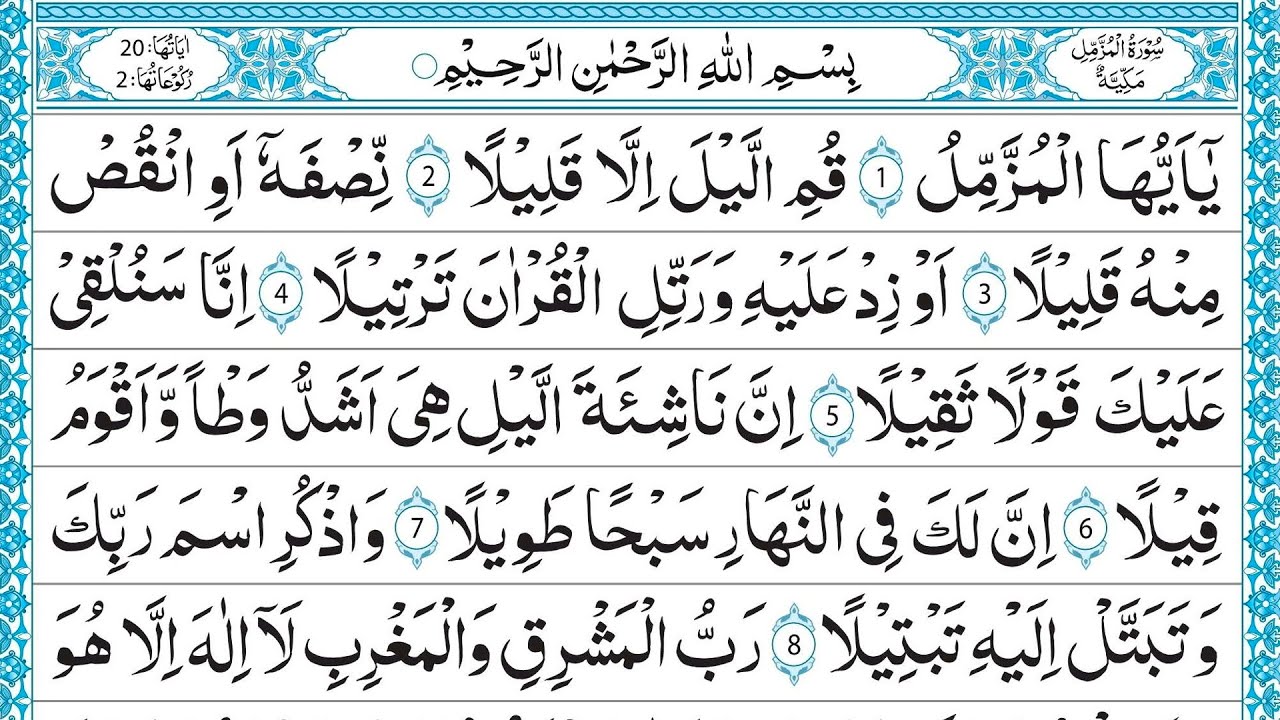 سُوْرَةُ الْمُزَّمِّلِ
مَكِّيَّةٌ
بِسْمِ اللّٰهِ الرَّحْمٰنِ الرَّحِيْمِ
اٰيَاتُهَا: 20
رُكُوْعَاتُهَا: 2
يٰٓاَيُّهَا الْمُزَّمِّلُ 1 قُمِ الَّيْلَ اِلَّا قَلِيْلًا 2 نِّصْفَهٗٓ اَوِ انْقُصْ
مِنْهُ قَلِيْلًا 3 اَوْ زِدْ عَلَيْهِ وَرَتِّلِ الْقُرْاٰنَ تَرْتِيْلًا 4 اِنَّا سَنُلْقِىْ
عَلَيْكَ قَوْلًا ثَقِيْلًا 5 اِنَّ نَاشِئَةَ الَّيْلِ هِىَ اَشَدُّ وَطْاً وَّاَقْوَمُ
قِيْلًا 6 اِنَّ لَكَ فِى النَّهَارِ سَبْحًا طَوِيْلًا 7 وَاذْكُرِ اسْمَ رَبِّكَ
وَتَبَتَّلْ اِلَيْهِ تَبْتِيْلًا 8 رَبُّ الْمَشْرِقِ وَالْمَغْرِبِ لَآ اِلٰهَ اِلَّا هُوَ